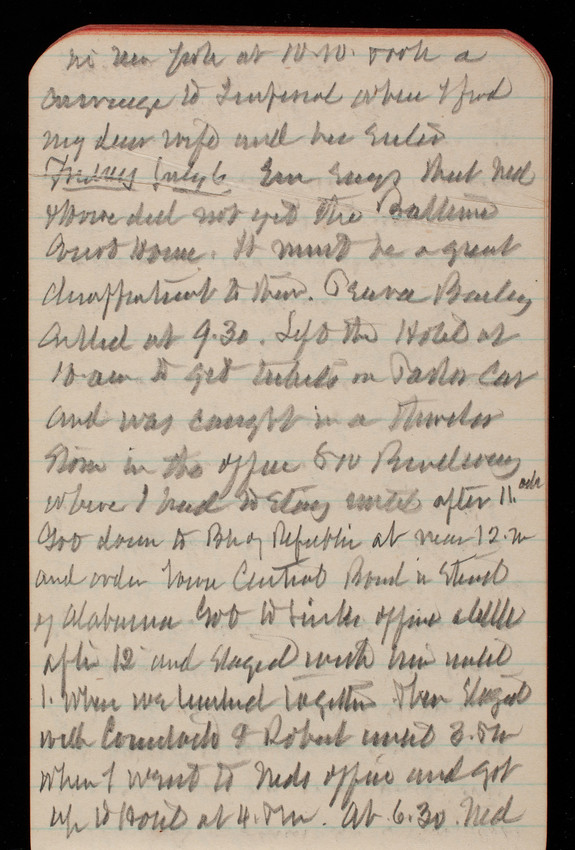 in New York at 10.10. took a
carriage to Imperial where I find
my dear wife and her sister
Friday July 6 Em says that Ned
& Howe did not get the
Court House. It must be a great
disappointment to them. Bailey
called at 9.30. Left the Hotel at
10 am to get tickets on Parlor Car
and was caught in a thunder
storm in the office Broadway
where I had to stay until after 11. oclk
Got down to Bk of Republic at near 12. m
and order Iowa Central Bond in Stead
of Alabama Got to office a little
after 12 and stayed with him until
1. When we lunched together then stayed
with Comstock & Robert until 3. Pm
when I went to Neds office and got
up to Hotel at 4. Pm. At 6.30. Ned